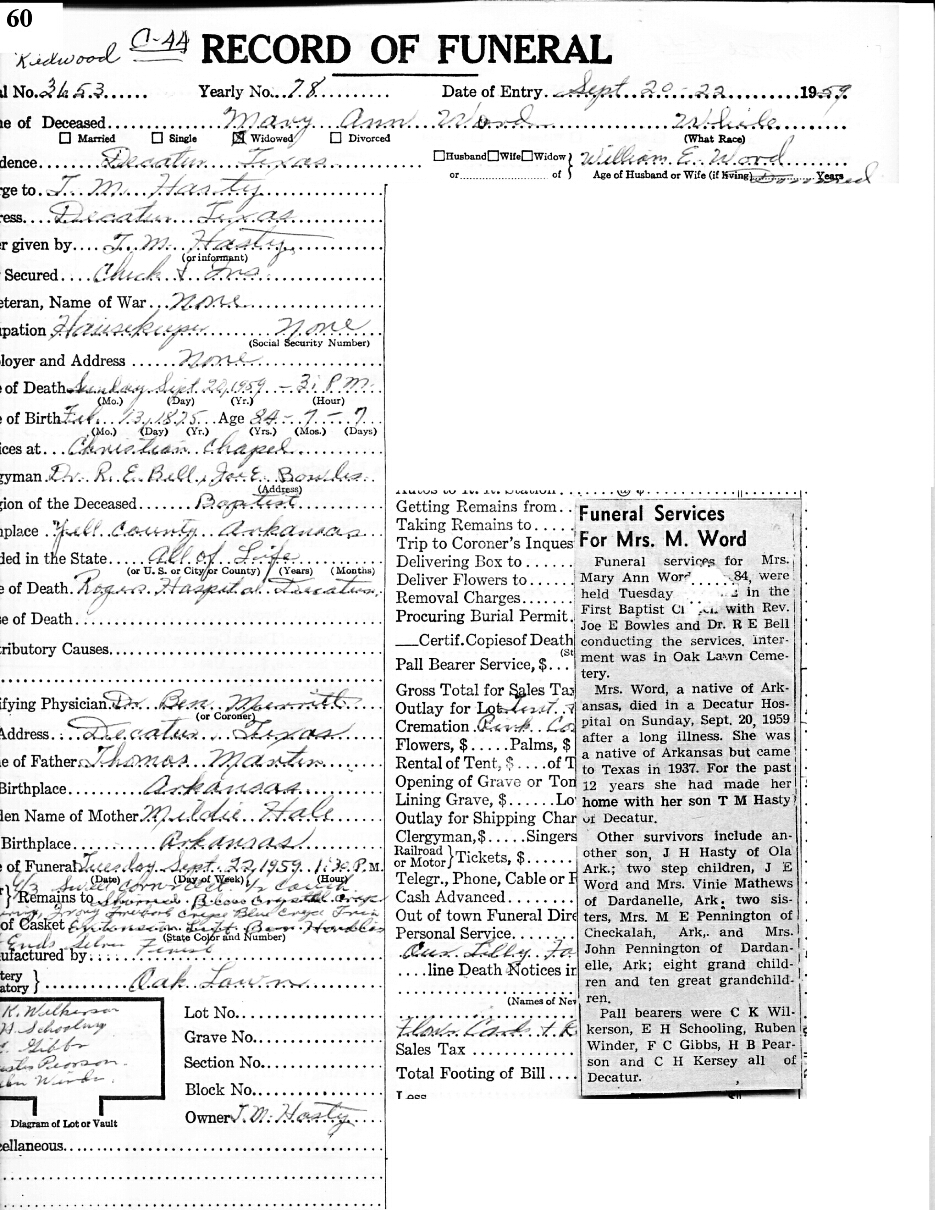 60
Redwood C-44 RECORD OF FUNERAL
l No. 3653...... Yearly No... 78.......... Date of Entry. Sept. 20-22 ..........1959
e of Deceased............ Mary Ann Word White
Married Single Widowed Divorced (What Race)
dence. Decatur Texas Husband Wife Widow William E. Word
or.................... of Age of Husband or Wife (if living) ......... Years
rge to. T. M. Hasty
ress.... Decatur Texas
r given by.... T. M. Hasty
(or informant)
Secured.... Check & Ins
eteran, Name of War... None
pation Housekeeper None
(Social Security Number)
loyer and Address ...... None
e of Death Sunday Sept. 20, 1959 - 3: P.M.
(Mo.) (Day) (Yr.) (Hour)
e of Birth Feb. 13, 1875 Age 84 - 7 - 7
(Mo.) (Day) (Yr.) (Yrs.) (Mos.) (Days)
ices at... Christian Chapel
gyman Dr. R. E. Bell, Joe E. Bowles
(Address)
gion of the Deceased..... Baptist
place Yell County Arkansas
ded in the State..... All of Life
(or U. S. or City or County) (Years) (Months)
e of Death. Rogers Hospital Decatur
e of Death.
tributory Causes.
ifying Physician. Dr. Ben Merritt
(or Coroner)
Address... Decatur Texas
e of Father. Thomas Martin
Birthplace Arkansas
den Name of Mother Mildie Hale
Birthplace Arkansas
e of Funeral Tuesday Sept. 22, 1959. 1:30 P.M.
(Date) (Day of Week) (Hour)
Remains to
of Casket
(State Color and Number)
ufactured by
tery
atory } Oak Lawn
K. Wilkerson
H. Schooling
Gibbs
Pearson
Winder
Diagram of Lot or Vault
Lot No.
Grave No.
Section No.
Block No.
Owner T. M. Hasty
ellaneous.
Autos to R. R. Station
Getting Remains from. .
Taking Remains to . . . . .
Trip to Coroner's Inques
Delivering Box to . . . . .
Deliver Flowers to . . . .
Removal Charges. . . . . . .
Procuring Burial Permit.
Certif. Copies of Death
(St
Pall Bearer Service, $. . .
Gross Total for Sales Tax
Outlay for Lot
Cremation
Flowers, $ . . . . . Palms, $
Rental of Tent, $ . . . . of T
Opening of Grave or Tom
Lining Grave, $ . . . . . . Lo
Outlay for Shipping Char
Clergyman, $ . . . . . Singers
Railroad
or Motor } Tickets, $ . . . . . . .
Telegr., Phone, Cable or F
Cash Advanced . . . . . . . .
Out of town Funeral Dire
Personal Service. . . . . . . .
. . . .line Death Notices in
(Names of New
Sales Tax . . . . . . . . . . .
Total Footing of Bill . . . .
Less
Funeral Services
For Mrs. M. Word
Funeral services for Mrs.
Mary Ann Wor 84, were
held Tuesday in the
First Baptist C with Rev.
Joe E Bowles and Dr. R E Bell
conducting the services. Inter-
ment was in Oak Lawn Ceme-
tery.
Mrs. Word, a native of Ark-
ansas, died in a Decatur Hos-
pital on Sunday, Sept. 20, 1959
after a long illness. She was
a native of Arkansas but came
to Texas in 1937. For the past
12 years she had made her
home with her son T M Hasty
of Decatur.
Other survivors include an-
other son, J H Hasty of Ola
Ark.; two step children, J E
Word and Mrs. Vinie Mathews
of Dardanelle, Ark; two sis-
ters, Mrs. M E Pennington of
Checkalah, Ark,. and Mrs.
John Pennington of Dardan-
elle, Ark; eight grand child-
ren and ten great grandchild-
ren.
Pall bearers were C K Wil-
kerson, E H Schooling, Ruben
Winder, F C Gibbs, H B Pear-
son and C H Kersey all of
Decatur.